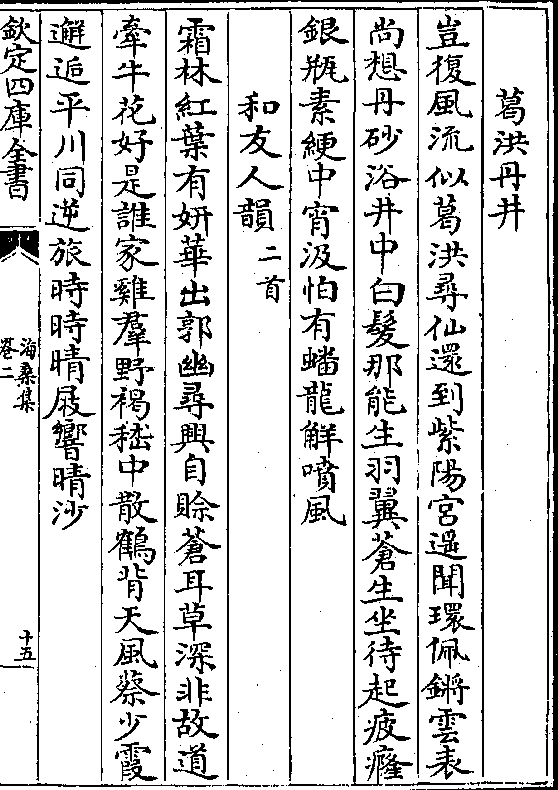 葛洪丹井
豈復風流似葛洪尋仙還到紫陽宮遥聞環佩鏘雲表
尚想丹砂浴井中白髮那能生羽翼蒼生坐待起疲癃
銀瓶素綆中宵汲怕有蟠龍解噴風
和友人韻二首
霜林紅葉有妍華出郭幽尋興自賖蒼耳草深非故道
牽牛花好是誰家雞羣野褐嵇中散鶴背天風蔡少霞
邂逅平川同逆旅時時晴屐響晴沙
欽定四庫全書
海桑集
卷二
十五